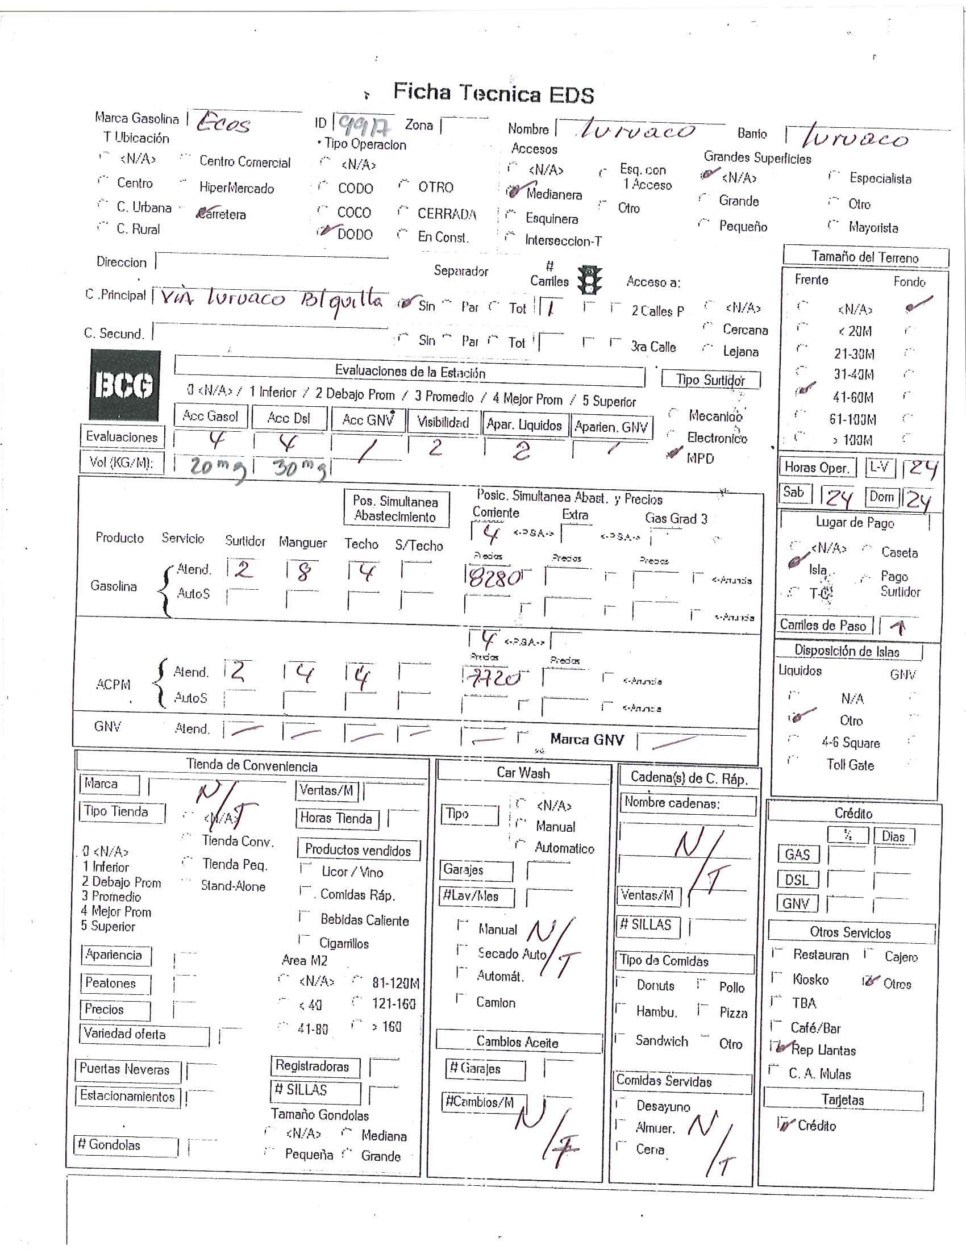 Ficha Tecnica EDS
Marca Gasolina Ecos ID 9917 Zona Nombre Luruaco Barrio Luruaco
T Ubicación • Tipo Operacion Accesos Grandes Superficies
<N/A> Centro Comercial <N/A> <N/A> Esq. con 1 Acceso <N/A> Especialista
Centro HiperMercado CODO OTRO Medianera Otro Grande Otro
C. Urbana Carretera COCO CERRADA Esquinera Pequeño Mayorista
C. Rural DODO En Const. Interseccion-T
Direccion Separador # Carriles Acceso a:
C .Principal VIA Luruaco B/quilla Sin Par Tot 1 2 Calles P <N/A>
Cercana
C. Secund. Sin Par Tot 3ra Calle Lejana
Tamaño del Terreno
Frente Fondo
<N/A>
< 20M
21-30M
31-40M
41-60M
61-100M
> 100M
BCG
Evaluaciones de la Estación
0 <N/A> / 1 Inferior / 2 Debajo Prom / 3 Promedio / 4 Mejor Prom / 5 Superior
Acc Gasol Acc Dsl Acc GNV Visibilidad Apar. Liquidos Aparien. GNV
Evaluaciones 4 4 / 2 2 /
Vol (KG/M): 20 mg 30 mg
Tipo Surtidor
Mecanico
Electronico
MPD
Horas Oper. L-V 24
Sab 24 Dom 24
Pos. Simultanea Abastecimiento
Posic. Simultanea Abast. y Precios
Corriente Extra Gas Grad 3
4 <-P.S.A-> <-P.S.A->
Producto Servicio Surtidor Manguer Techo S/Techo
Precios Precios Precios
Gasolina Atend. 2 8 4 8280 <-Anuncia
AutoS <-Anuncia
4 <-P.S.A->
Precios Precios
ACPM Atend. 2 4 4 7720 <-Anuncia
AutoS <-Anuncia
GNV Atend. — — — — — Marca GNV —
Lugar de Pago
<N/A> Caseta
Isla Pago Surtidor
T-C
Carriles de Paso 1
Disposición de Islas
Liquidos GNV
N/A
Otro
4-6 Square
Toll Gate
Tienda de Conveniencia
Marca N/T Ventas/M
Tipo Tienda <N/A> Horas Tienda
Tienda Conv. Productos vendidos
0 <N/A>
1 Inferior Tienda Peq. Licor / Vino
2 Debajo Prom Stand-Alone Comidas Ráp.
3 Promedio
4 Mejor Prom Bebidas Caliente
5 Superior Cigarrillos
Apariencia Area M2
Peatones <N/A> 81-120M
Precios < 40 121-160
Variedad oferta 41-80 > 160
Puertas Neveras Registradoras
Estacionamientos # SILLAS
Tamaño Gondolas
# Gondolas <N/A> Mediana
Pequeña Grande
Car Wash
Tipo <N/A>
Manual
Automatico
Garajes
#Lav/Mes
Manual N/T
Secado Auto
Automát.
Camion
Cambios Aceite
# Garajes
#Cambios/M
N/T
Cadena(s) de C. Ráp.
Nombre cadenas:
N/T
Ventas/M
# SILLAS
Tipo de Comidas
Donuts Pollo
Hambu. Pizza
Sandwich Otro
Comidas Servidas
Desayuno
Almuer. N/T
Cena
Crédito
% Dias
GAS
DSL
GNV
Otros Servicios
Restauran Cajero
Kiosko Otros
TBA
Café/Bar
Rep Llantas
C. A. Mulas
Tarjetas
Crédito